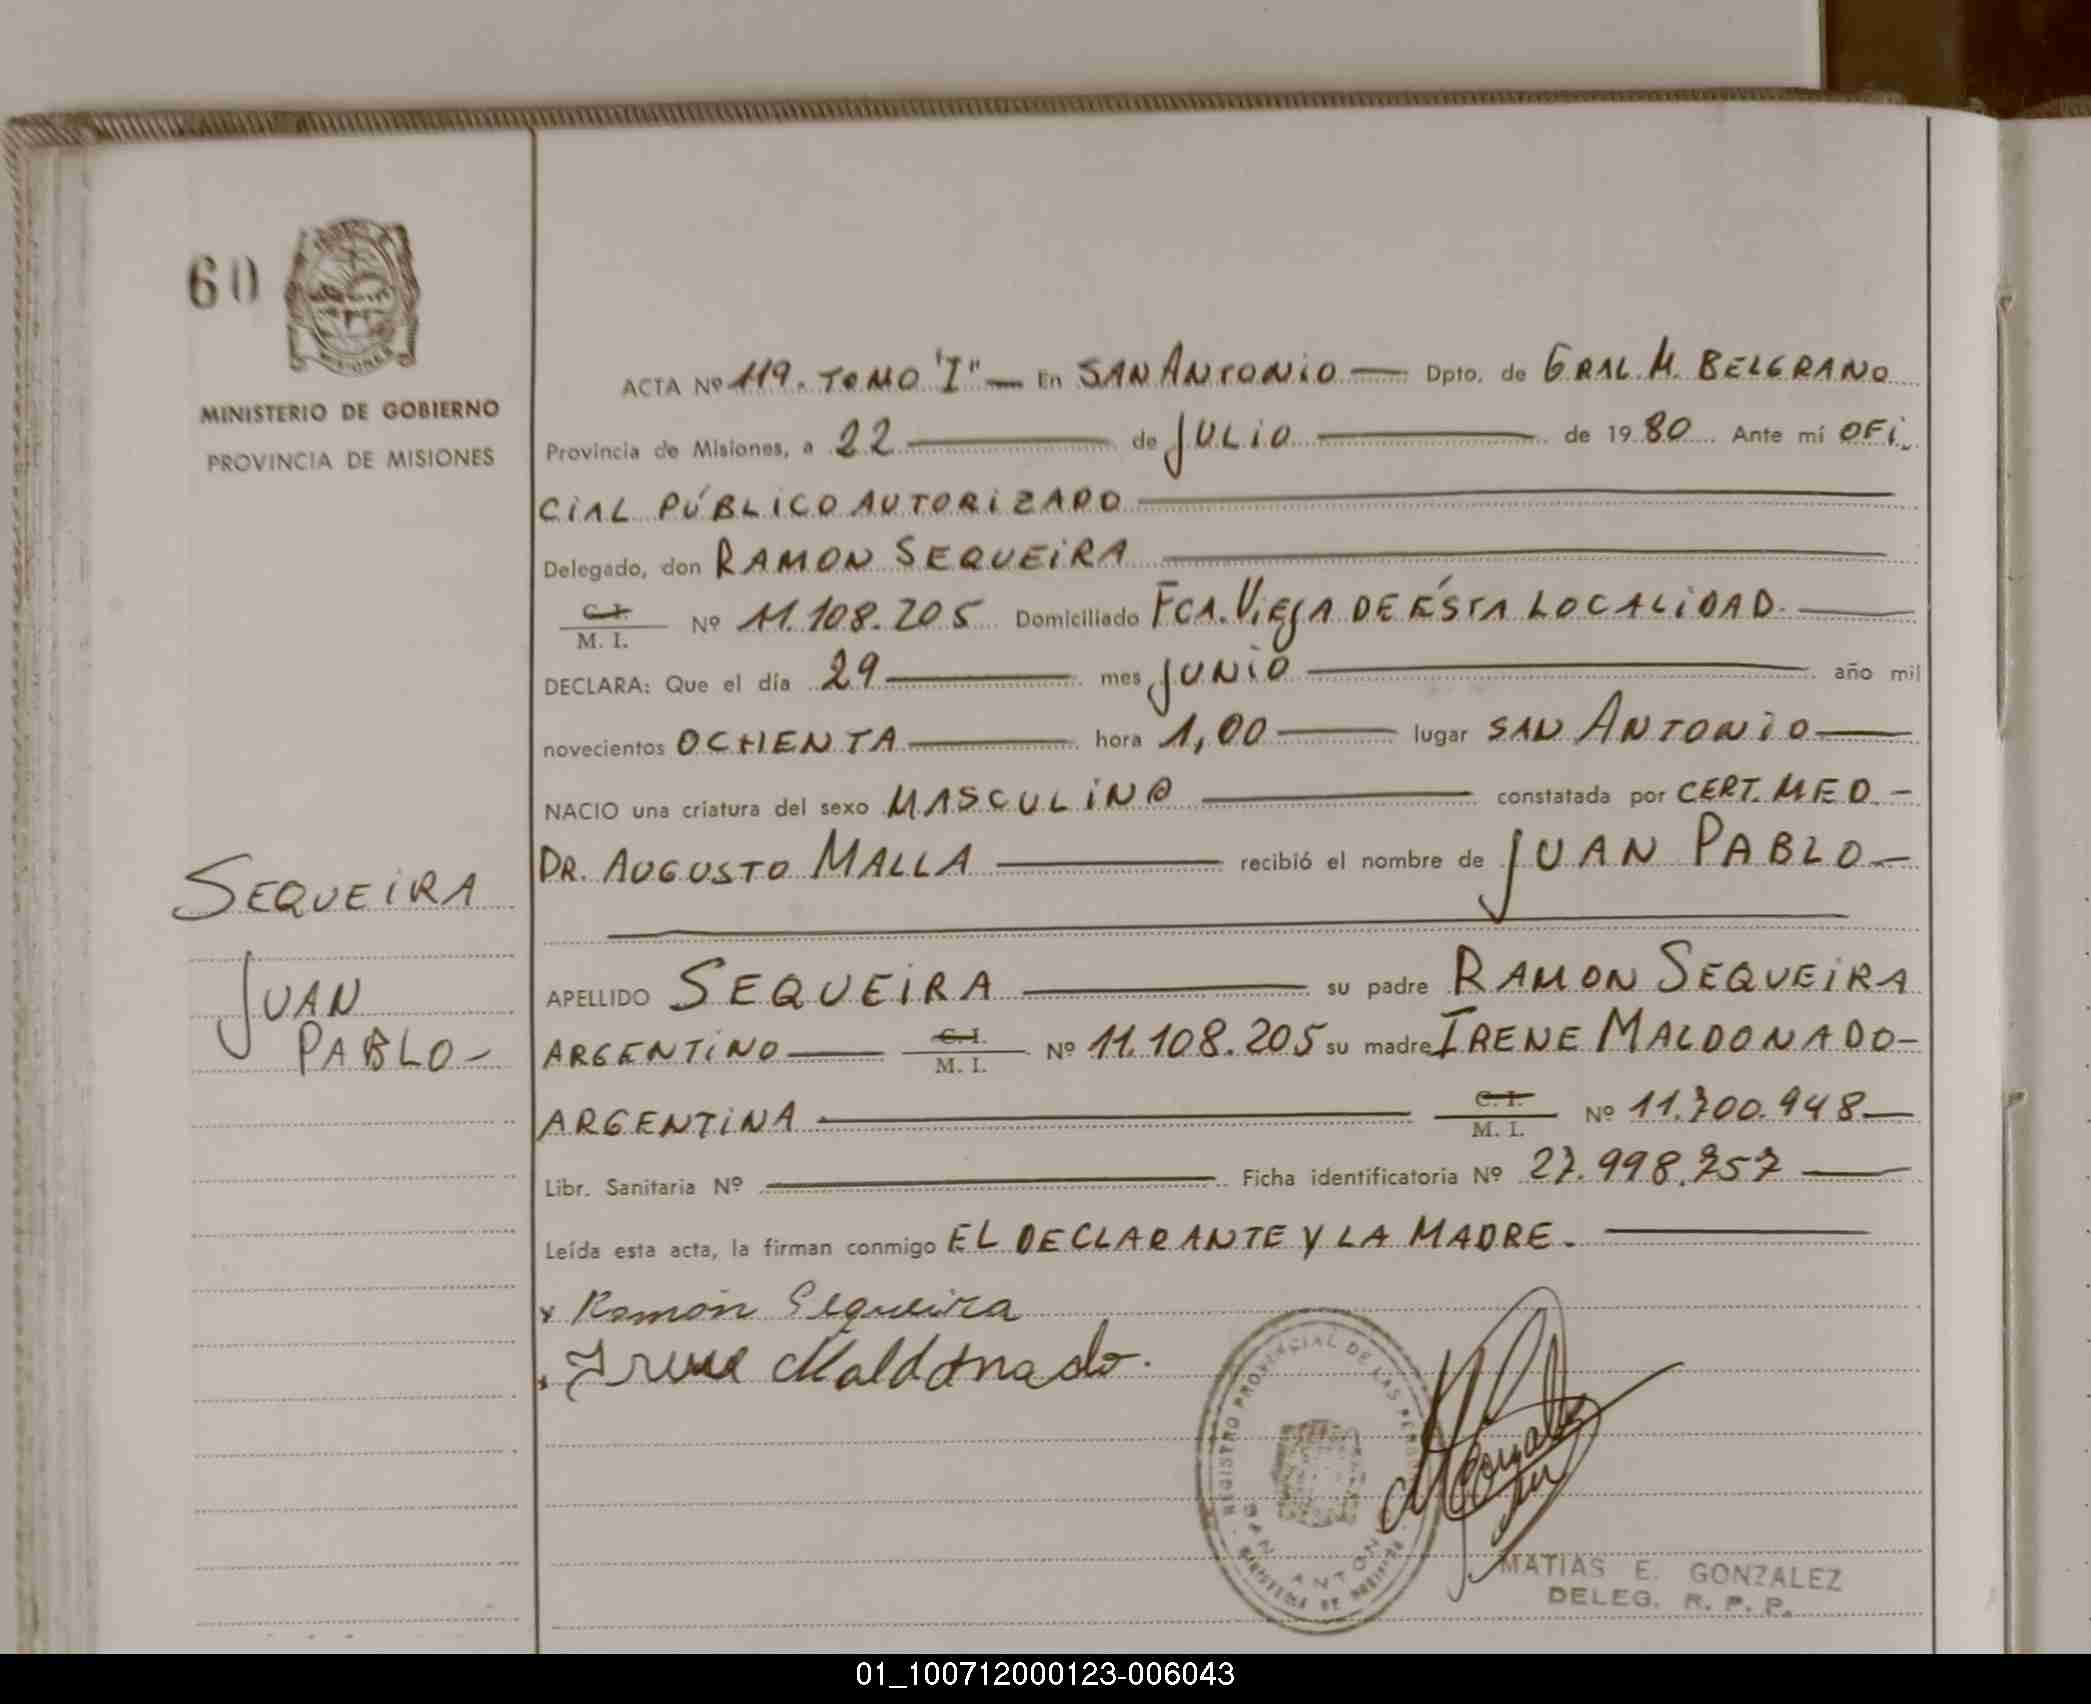 60
MINISTERIO DE GOBIERNO
PROVINCIA DE MISIONES
SEQUEIRA
JUAN
PABLO-
ACTA Nº 119. TOMO "I" — En SAN ANTONIO — Dpto. de GRAL. M. BELGRANO
Provincia de Misiones, a 22 — de JULIO — de 1980 Ante mí OFI-
CIAL PÚBLICO AUTORIZADO —
Delegado, don RAMON SEQUEIRA —
C. I.
M. I. Nº 11.108.205 Domiciliado FCA. VIEJA DE ÉSTA LOCALIDAD. —
DECLARA: Que el día 29 — mes JUNIO — año mil
novecientos OCHENTA — hora 1,00 — lugar SAN ANTONIO —
NACIO una criatura del sexo MASCULINO — constatada por CERT. MED. -
DR. AUGUSTO MALLA — recibió el nombre de JUAN PABLO —
APELLIDO SEQUEIRA — su padre RAMON SEQUEIRA
ARGENTINO — C. I. M. I. Nº 11.108.205 su madre IRENE MALDONADO-
ARGENTINA — C. I. M. I. Nº 11.700.948 —
Libr. Sanitaria Nº — Ficha identificatoria Nº 27.998.757 —
Leída esta acta, la firman conmigo EL DECLARANTE Y LA MADRE. —
x Ramón Sequeira
x Irene Maldonado.
REGISTRO PROVINCIAL DE LAS PERSONAS
SAN ANTONIO
MATIAS E. GONZALEZ
DELEG. R. P. P.
01_100712000123-006043